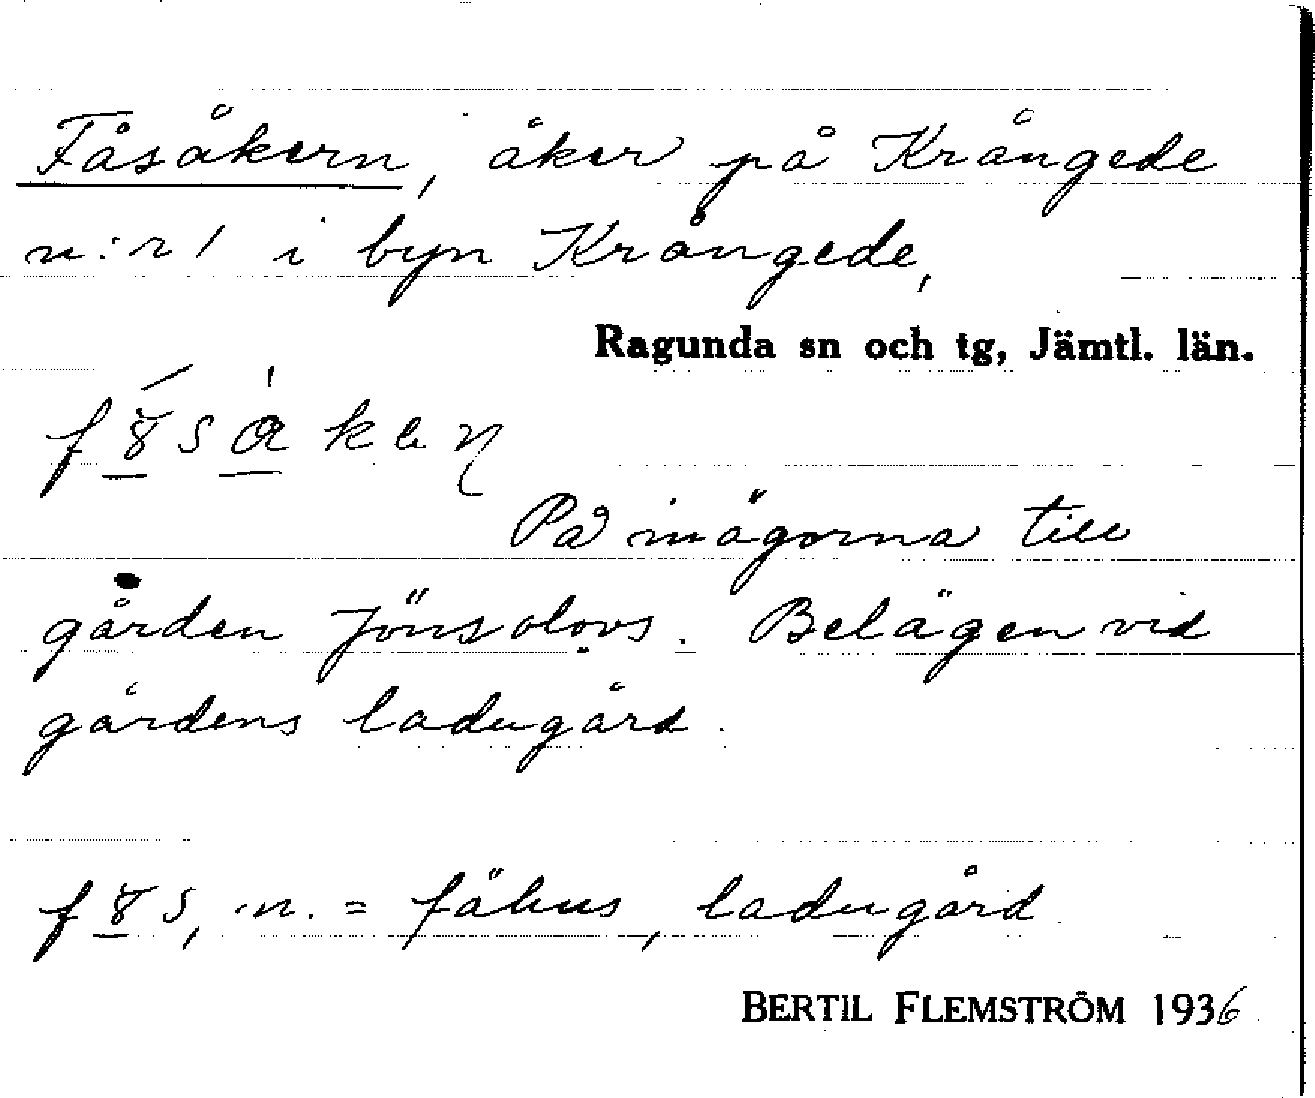 Fåsåkern, åker på Krångede
n:r 1 i byn Krångede,
Ragunda sn och tg, Jämtl. län.
På inägorna till
gården Jönsolovs. Belägen vid
gårdens ladugård.
n. = fähus, ladugård
BERTIL FLEMSTRÖM 1936